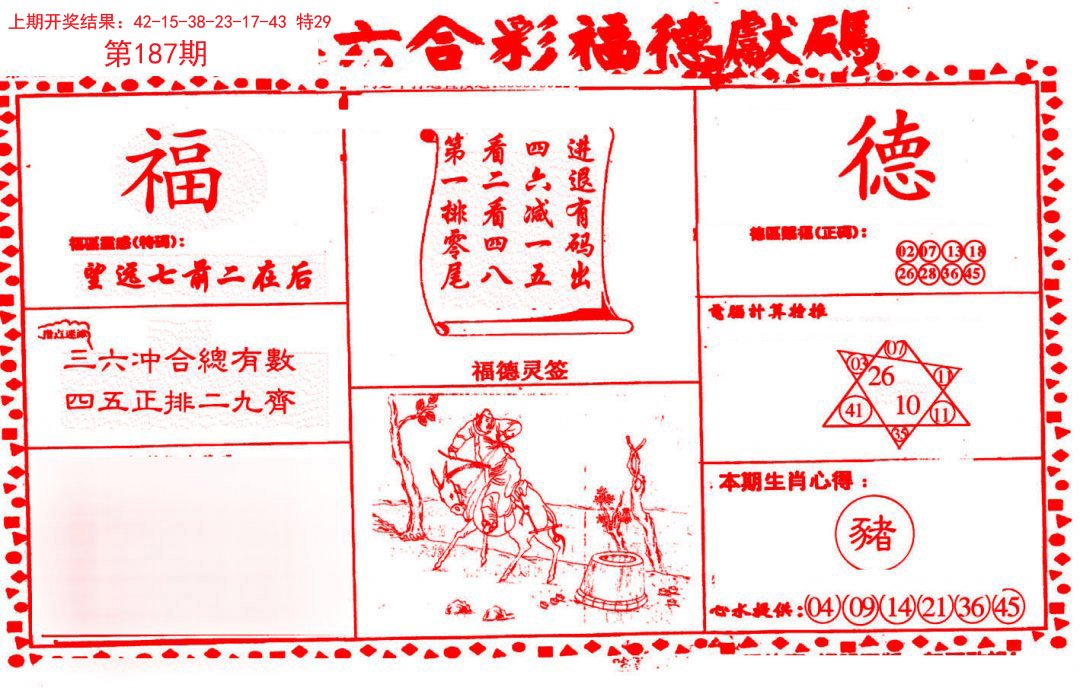 上期开奖结果：42-15-38-23-17-43 特29
第187期
六合彩福德獻碼
福
福區靈感(特碼)：
望远七前二在后
指点迷津
三六冲合總有數
四五正排二九齊
进退有码出
四六减一五
看二看四八
第一排零尾
福德灵签
德
德區賜福(正碼)：
02 07 13 18
26 28 36 45
電腦計算精推
07
03 26 11
41 10 11
35
本期生肖心得：
豬
心水提供:04 09 14 21 36 45